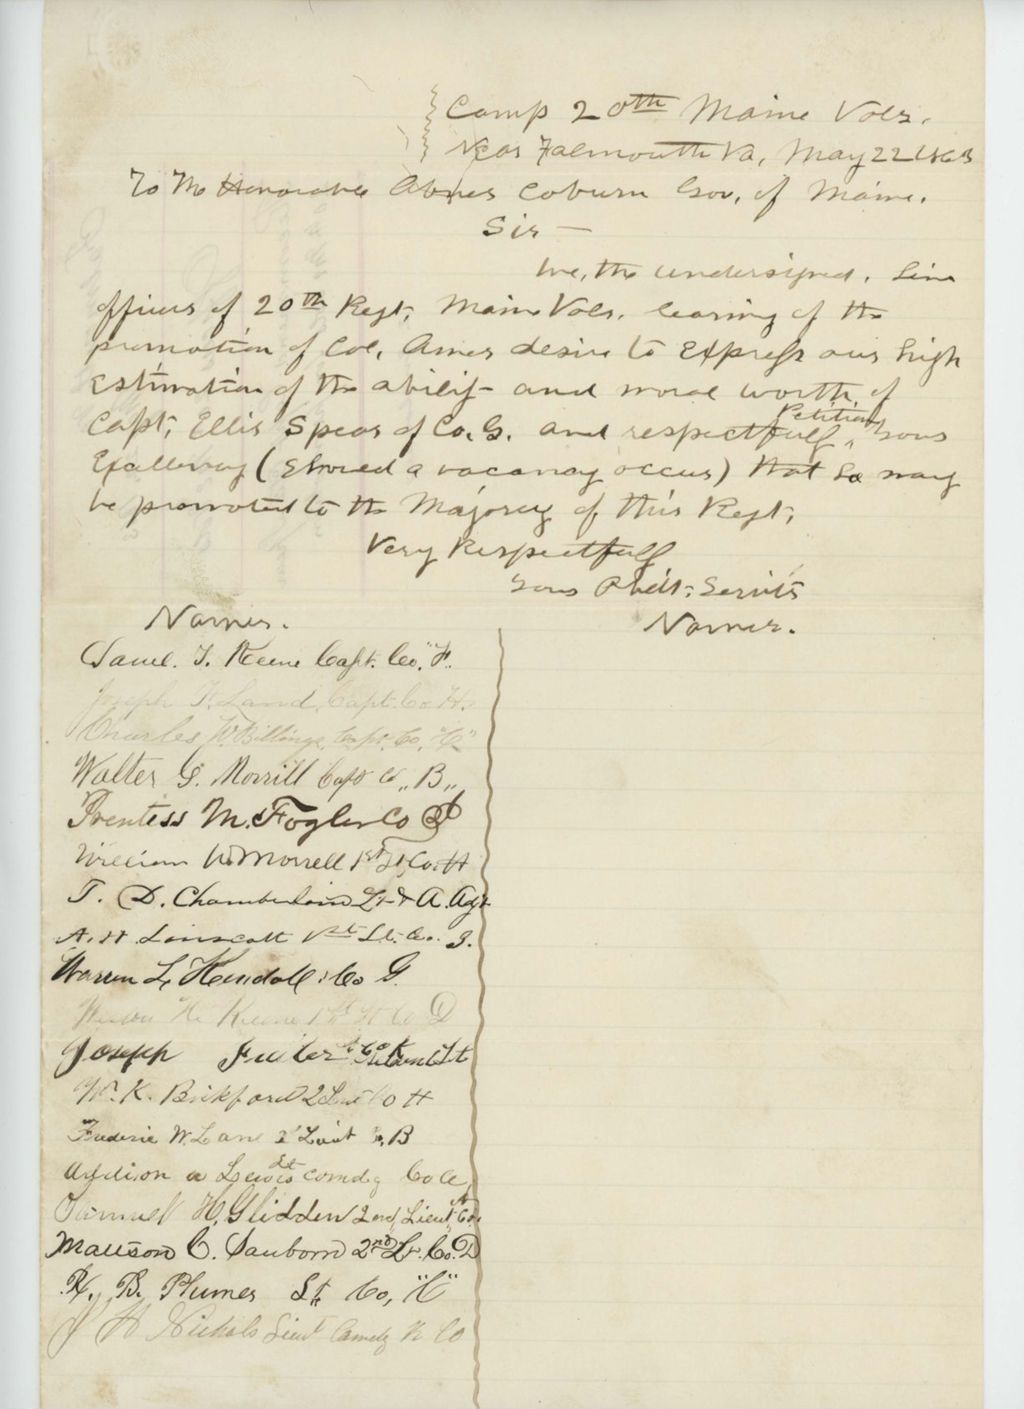 Camp 20th Maine Vols.
Near Falmouth Va, May 22 1863
To the Honorable Abner Coburn Gov. of Maine.
Sir —
We, the undersigned, Line
officers of 20th Regt, Maine Vols. learning of the
promotion of Col. Ames desire to Express our high
Estimation of the ability and moral worth of
Capt, Ellis Spear of Co. G. and respectfully Petition your
Excellency (Should a vacancy occur) that he may
be promoted to the Majority of this Regt,
Very Respectfully
Your Obedt. Servts
Names. Names.
Saml. T. Keene Capt. Co. "F".
Joseph F. Land, Capt. Co. H.
Charles W Billings, Capt. Co, "C"
Walter G. Morrill Capt Co "B"
Prentess M. Fogler Co
William W. Morrell 1st Lt, Co. H
T. D. Chamberlain Lt & A. Adjt
A. H. Linscott 1st Lt. Co.
Warren L. Kendall Co G.
Weston H. Keene 1st Lt Co D
Joseph Fuller Co K Lt
W. K. Bickford 2 Lieut Co H
Frederic W. Lane 2d Lieut Co, B
Addison W Lewis Lt comdg Co A,
Samuel H. Glidden 2nd, Lieut, Co.
Mattson C. Sanborn 2nd Lt. Co. D
H. B. Plumer Lt Co, "C"
J H Nichols Lieut Comdg K Co